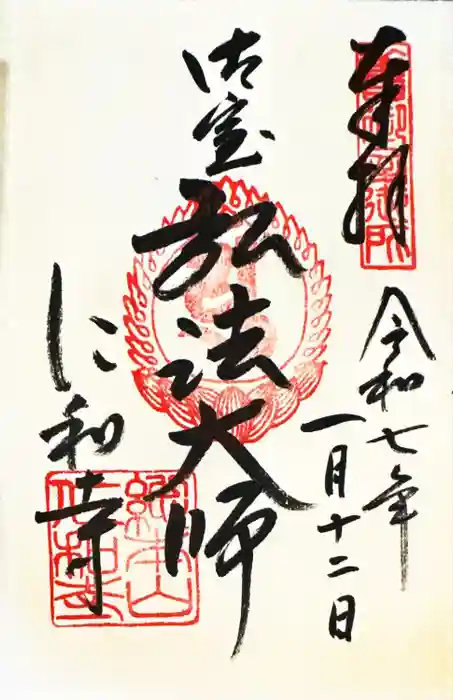 奉拝
令和七年
一月十二日
御室
弘法大師
仁和寺